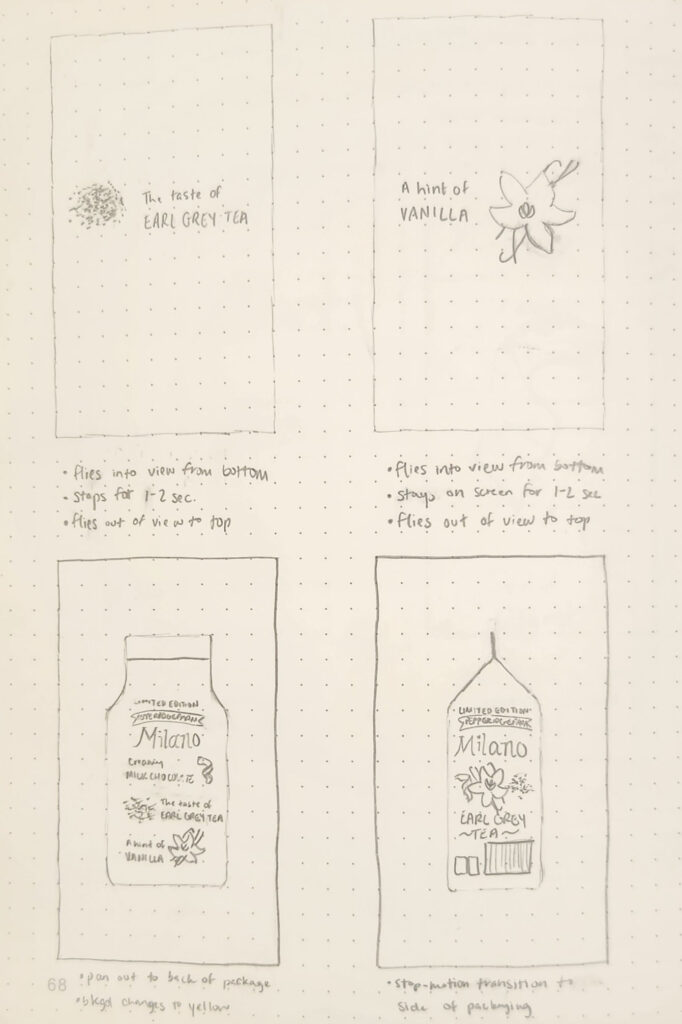 The taste of
EARL GREY TEA
A hint of
VANILLA
• flies into view from bottom
• stops for 1-2 sec.
• flies out of view to top
• flies into view from bottom
• stays on screen for 1-2 sec
• flies out of view to top
LIMITED EDITION
Milano
Creamy
MILK CHOCOLATE
The taste of
EARL GREY TEA
A hint of
VANILLA
• pan out to back of package
• bkgd changes to yellow
LIMITED EDITION
PEPPERIDGE FARM
Milano
EARL GREY
~TEA~
• stop-motion transition to
side of packaging
68